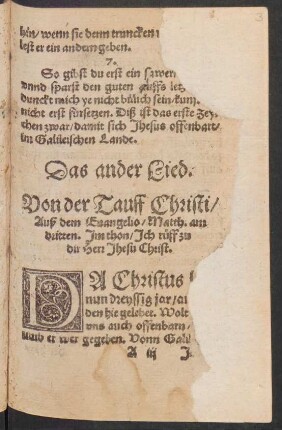 hin/wenn sie denn truncken
lest er ein andern geben.
7.
So gibst du erst ein
vnnd sparst den guten
dunckt mich ye nicht billich sein/
nicht erst fürsetzen. Diß ist das erste Zey
chen zwar/damit sich Jhesus offenbart/
im Galileischen Lande.
Das ander Lied.
Von der Tauff Christi/
Auß dem Euangelio/Matth. am
dritten. Im thon/Ich rüff zu
dir Herr Jhesu Christ.
DA Christus
nun dreyssig jar/
den hie gelebet. Wolt
vns auch offenbarn
er wer gegeben. Vonn Gali
A iij
3